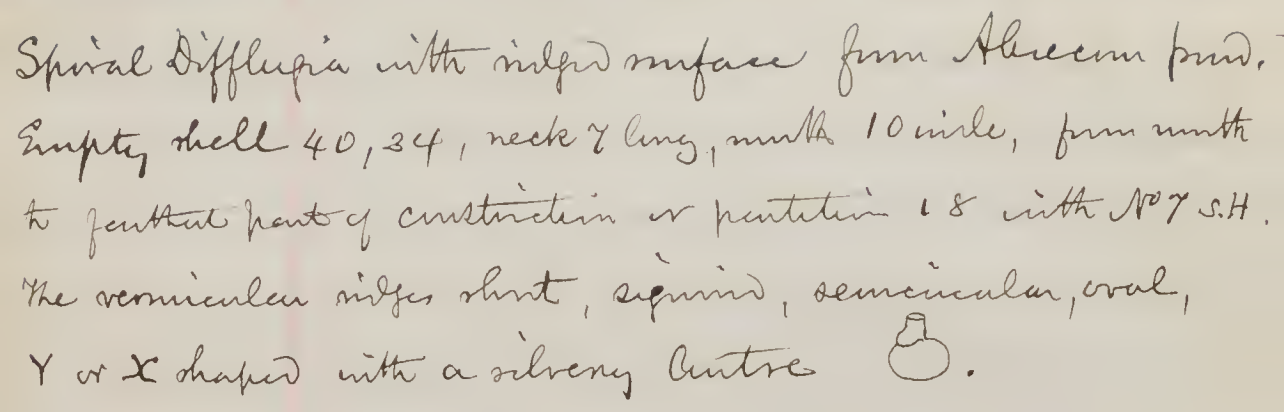 Spiral Difflugia with ridged surface from Absecom pond.
Empty shell 40, 34, neck 7 long, mouth 10 wide, from mouth
to farthest part of constriction or partition 18 with No 7 S.H.
The vermicular ridges short, sigmoid, semicircular, oval,
Y or X shaped with a silvery centre